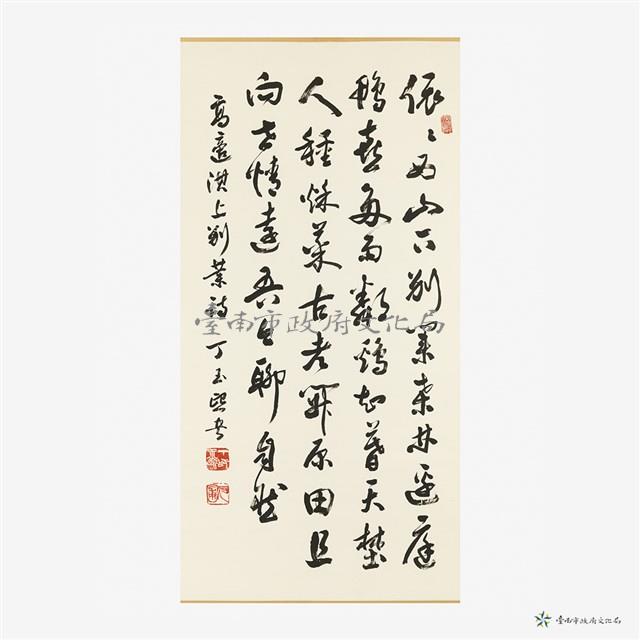 依〻西山下別業桑林邊庭
鴨喜多雨鄰鷄知暮天埜
人種秋菜古老開原田且
向世情遠吾聊自然
高適淇上別業詩 丁玉熙書
臺南市政府文化局
臺南市政府文化局